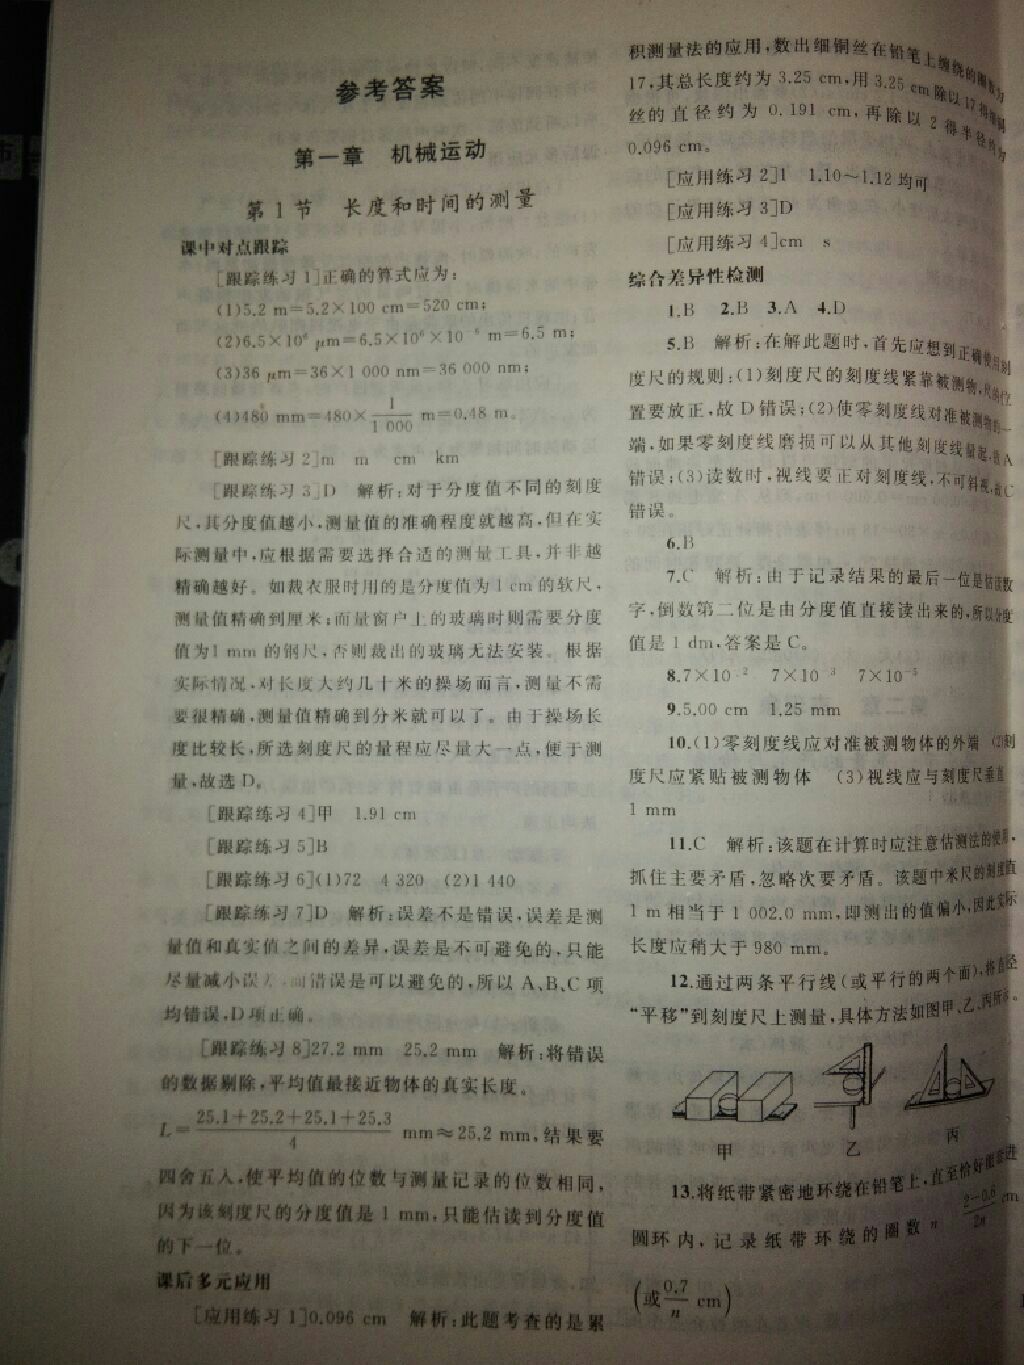 参考答案
第一章 机械运动
第1节 长度和时间的测量
课中对点跟踪
[跟踪练习1]正确的算式应为:
(1)5.2 m=5.2×100 cm=520 cm;
(2)6.5×10⁶ μm=6.5×10⁶×10⁻⁶ m=6.5 m;
(3)36 μm=36×1 000 nm=36 000 nm;
(4)480 mm=480×1/1 000 m=0.48 m。
[跟踪练习2]m m cm km
[跟踪练习3]D 解析:对于分度值不同的刻度
尺,其分度值越小,测量值的准确程度就越高,但在实
际测量中,应根据需要选择合适的测量工具,并非越
精确越好。如裁衣服时用的是分度值为1 cm的软尺,
测量值精确到厘米;而量窗户上的玻璃时则需要分度
值为1 mm的钢尺,否则裁出的玻璃无法安装。根据
实际情况,对长度大约几十米的操场而言,测量不需
要很精确,测量值精确到分米就可以了。由于操场长
度比较长,所选刻度尺的量程应尽量大一点,便于测
量,故选D。
[跟踪练习4]甲 1.91 cm
[跟踪练习5]B
[跟踪练习6](1)72 4 320 (2)1 440
[跟踪练习7]D 解析:误差不是错误,误差是测
量值和真实值之间的差异,误差是不可避免的,只能
尽量减小误差,而错误是可以避免的,所以A、B、C项
均错误,D项正确。
[跟踪练习8]27.2 mm 25.2 mm 解析:将错误
的数据剔除,平均值最接近物体的真实长度。
L=(25.1+25.2+25.1+25.3)/4 mm≈25.2 mm,结果要
四舍五入,使平均值的位数与测量记录的位数相同,
因为该刻度尺的分度值是1 mm,只能估读到分度值
的下一位。
课后多元应用
[应用练习1]0.096 cm 解析:此题考查的是累
积测量法的应用,数出细铜丝在铅笔上缠绕的圈数为
17,其总长度约为3.25 cm,用3.25 cm除以17得细铜
丝的直径约为0.191 cm,再除以2得半径约为
0.096 cm。
[应用练习2]1 1.10～1.12均可
[应用练习3]D
[应用练习4]cm s
综合差异性检测
1.B 2.B 3.A 4.D
5.B 解析:在解此题时,首先应想到正确使用刻
度尺的规则:(1)刻度尺的刻度线紧靠被测物,尺的位
置要放正,故D错误;(2)使零刻度线对准被测物的一
端,如果零刻度线磨损可以从其他刻度线量起,故A
错误;(3)读数时,视线要正对刻度线,不可斜视,故C
错误。
6.B
7.C 解析:由于记录结果的最后一位是估读数
字,倒数第二位是由分度值直接读出来的,所以分度
值是1 dm,答案是C。
8.7×10⁻² 7×10⁻³ 7×10⁻⁵
9.5.00 cm 1.25 mm
10.(1)零刻度线应对准被测物体的外端 (2)刻
度尺应紧贴被测物体 (3)视线应与刻度尺垂直
1 mm
11.C 解析:该题在计算时应注意估测法的使用,
抓住主要矛盾,忽略次要矛盾。该题中米尺的刻度值
1 m相当于1 002.0 mm,即测出的值偏小,因此实际
长度应稍大于980 mm。
12.通过两条平行线(或平行的两个面),将直径
“平移”到刻度尺上测量,具体方法如图甲、乙、丙所示。
甲 乙 丙
13.将纸带紧密地环绕在铅笔上,直至恰好能套进
圆环内,记录纸带环绕的圈数n (2-0.6)/2n cm
(或0.7/n cm)